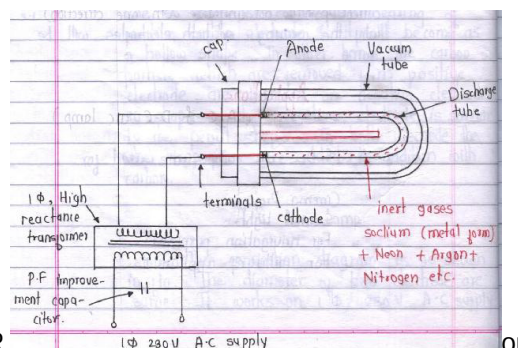 cap.
Anode
Vacuum
tube
Discharge
tube
terminals
cathode
inert gases
soclium (metal form)
+ Neon + Argon +
Nitrogen etc.
1Φ, High
reactance
transformer
P.F improve-
ment capa-
citor.
1Φ 230V A.C supply